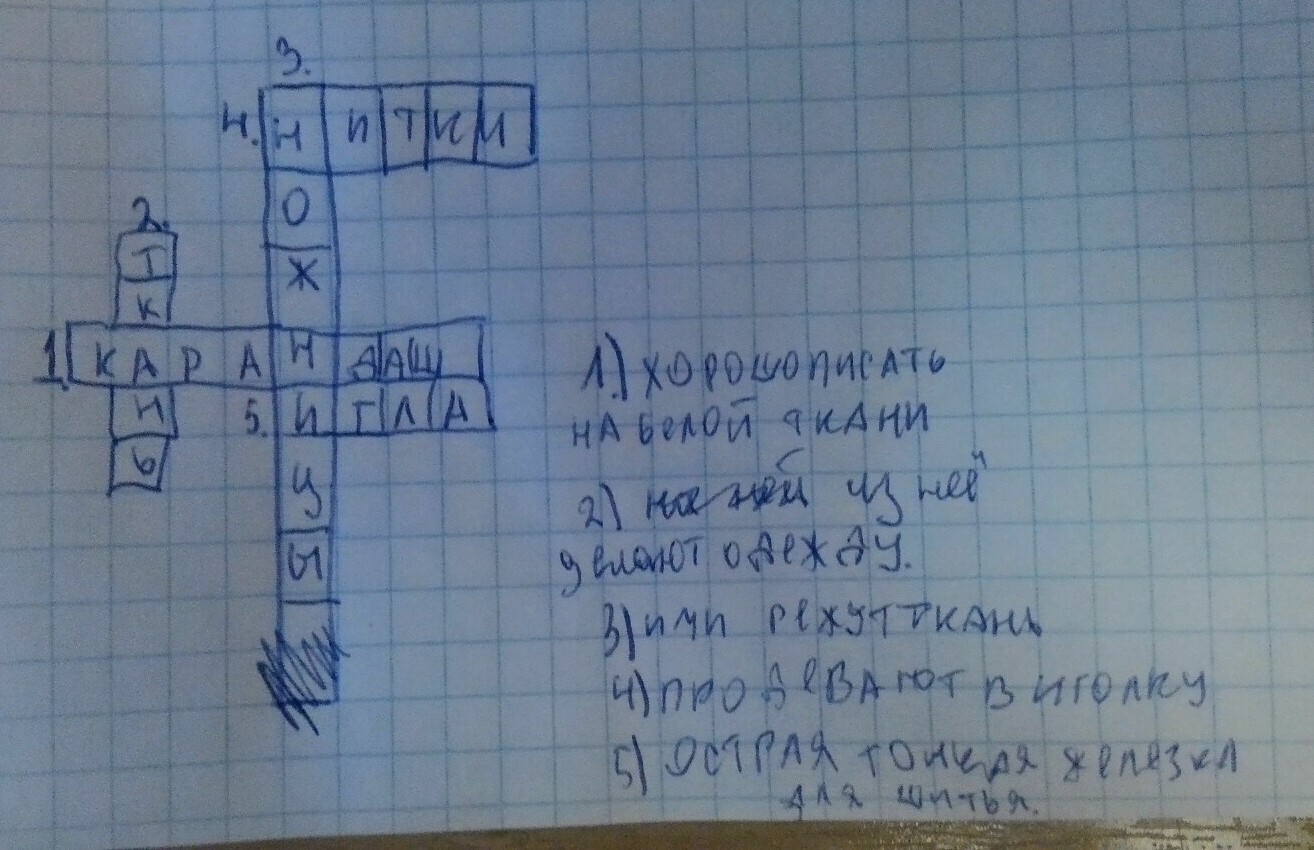 3.
4. НИТКИ
О
2.
Ж
Т
К
1. КАРАНДАШ
Н 5. ИГЛА
Ь
Ц
Ы
1) ХОРОШО ПИСАТЬ
НА БЕЛОЙ ТКАНИ
2) из неё
делают ОДЕЖДУ.
3) ИМИ РЕЖУТ ТКАНЬ
4) ПРОДЕВАЮТ В ИГОЛКУ
5) ОСТРАЯ ТОНКАЯ ЖЕЛЕЗКА
ДЛЯ ШИТЬЯ.